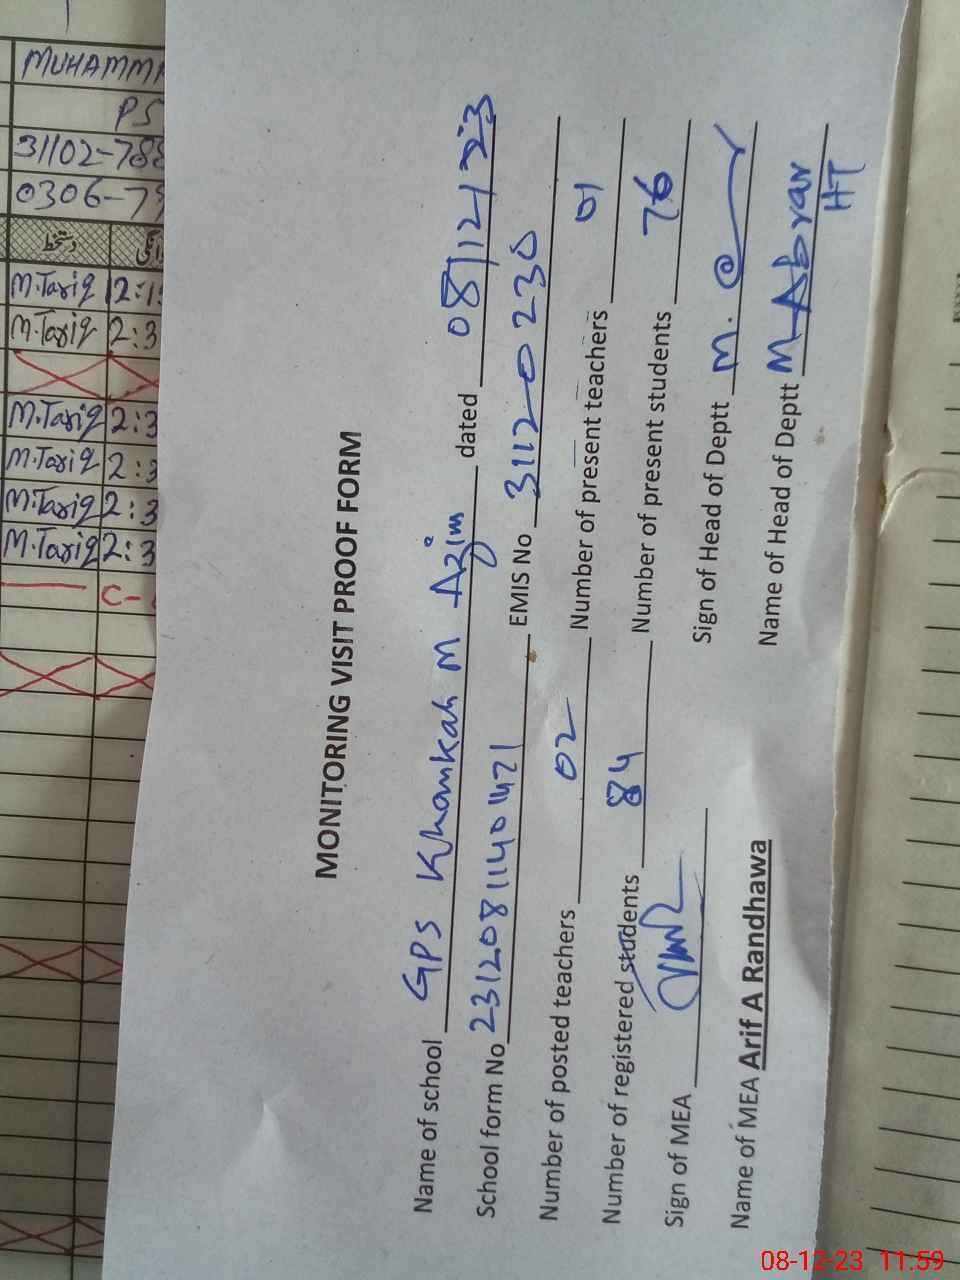 MUHAMMA
PS
31102-788
0306-79
دستخط
M.Tariq 12:1
M.Tariq 2:3
M.Tariq 2:3
M.Tariq 2:3
M.Tariq 2:3
M.Tariq 2:3
C-
MONITORING VISIT PROOF FORM
Name of school GPS Khankah M Azim dated 08/12/23
School form No 2312081140 EMIS No 31120230
Number of posted teachers 02 Number of present teachers 01
Number of registered students 84 Number of present students 76
Sign of MEA Sign of Head of Deptt M.
Name of MEA Arif A Randhawa Name of Head of Deptt M Abrar
HT
08-12-23 11.59